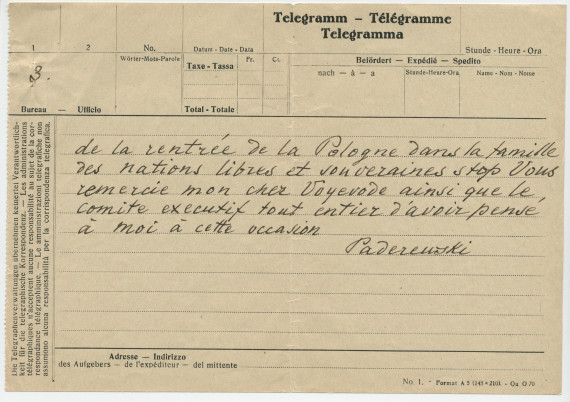 Telegramm – Télégramme
Telegramma
1
2
No.
Wörter-Mots-Parole
Datum - Date - Data
Taxe - Tassa
Fr.
Ct.
Total - Totale
Stunde - Heure - Ora
Befördert - Expédié - Spedito
nach - à - a
Stunde-Heure-Ora
Name - Nom - Nome
3.
Bureau — Ufficio
Die Telegraphenverwaltungen übernehmen keine Verantwortlich-
keit für die telegraphische Korrespondenz. — Les administrations
télégraphiques n'acceptent aucune responsabilité au sujet de la cor-
respondance télégraphique. — Le amministrazioni telegrafiche non
assumono alcuna responsabilità per la corrispondenza telegrafica.
de la rentrée de la Pologne dans la famille
des nations libres et souveraines stop Vous
remercie mon cher Voyevode ainsi que le
comite executif tout entier d'avoir pensé
à moi à cette occasion
Paderewski
Adresse — Indirizzo
des Aufgebers - de l'expéditeur - del mittente
No. 1. - Format A 5 (148×210). - Qu O 70